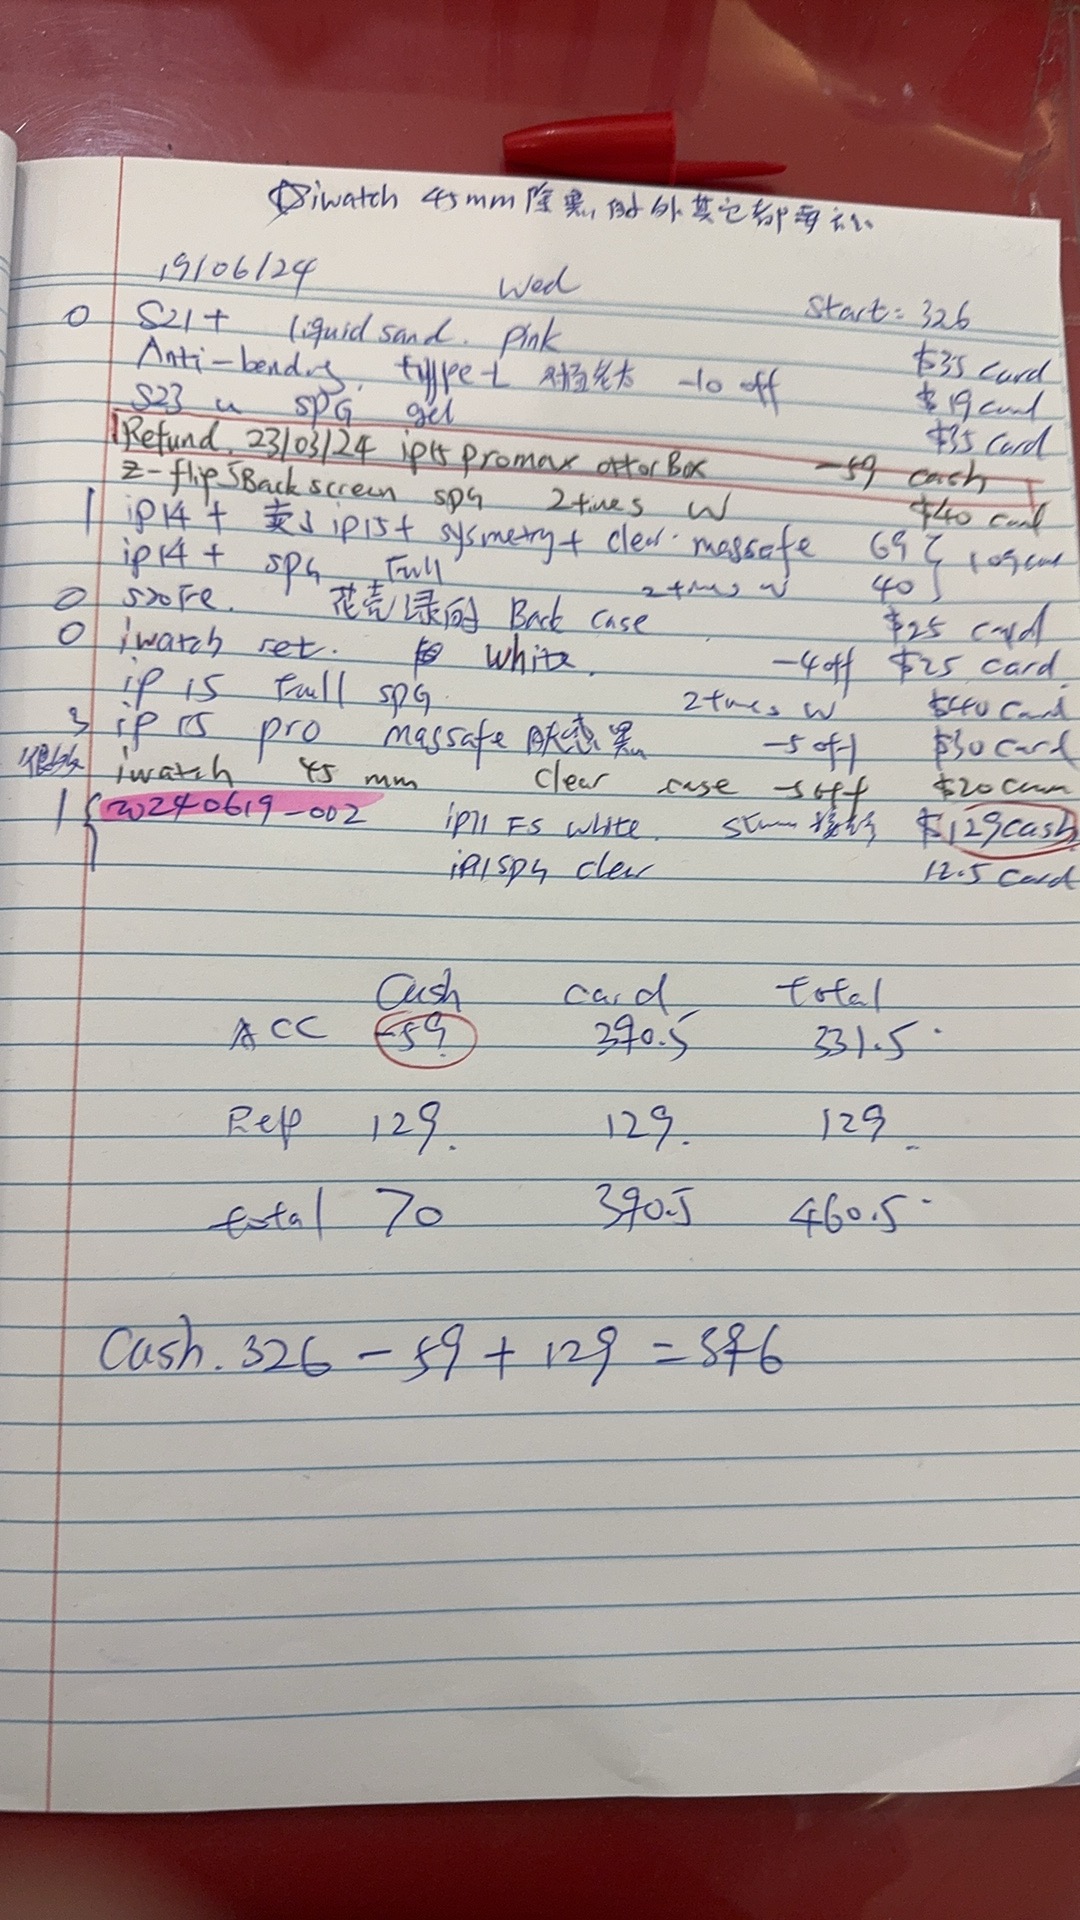 iwatch 45mm 除黑 外其它都要
19/06/24 Wed Start: 326
0 S21+ liquid sand. pink $35 card
Anti-bending. type-L -10 off $19 card
S23 u SPG gel $35 card
Refund. 23/03/24 ip15 promax otterBox -59 cash
z-flip5 Back screen spg 2 times w $40 card
1 ip14+ 卖了ip15+ sysmetry+ clear. massafe 69
ip14+ spg Full 2 times w 40 } 109 card
0 S20Fe. 花壳绿的 Back case $25 card
0 iwatch set. White. -4 off $25 card
ip 15 Full spg 2 times w $40 card
3 ip 15 pro massafe 肤感黑 -5 off $30 card
很多 iwatch 45 mm clear case -5 off $20 card
1 { 20240619-002 ip11 FS white. $129 cash
ip11 spg clear 12.5 card
Cash card total
ACC -59 390.5 331.5
Rep 129. 129. 129.
total 70 390.5 460.5
Cash. 326 - 59 + 129 = 396